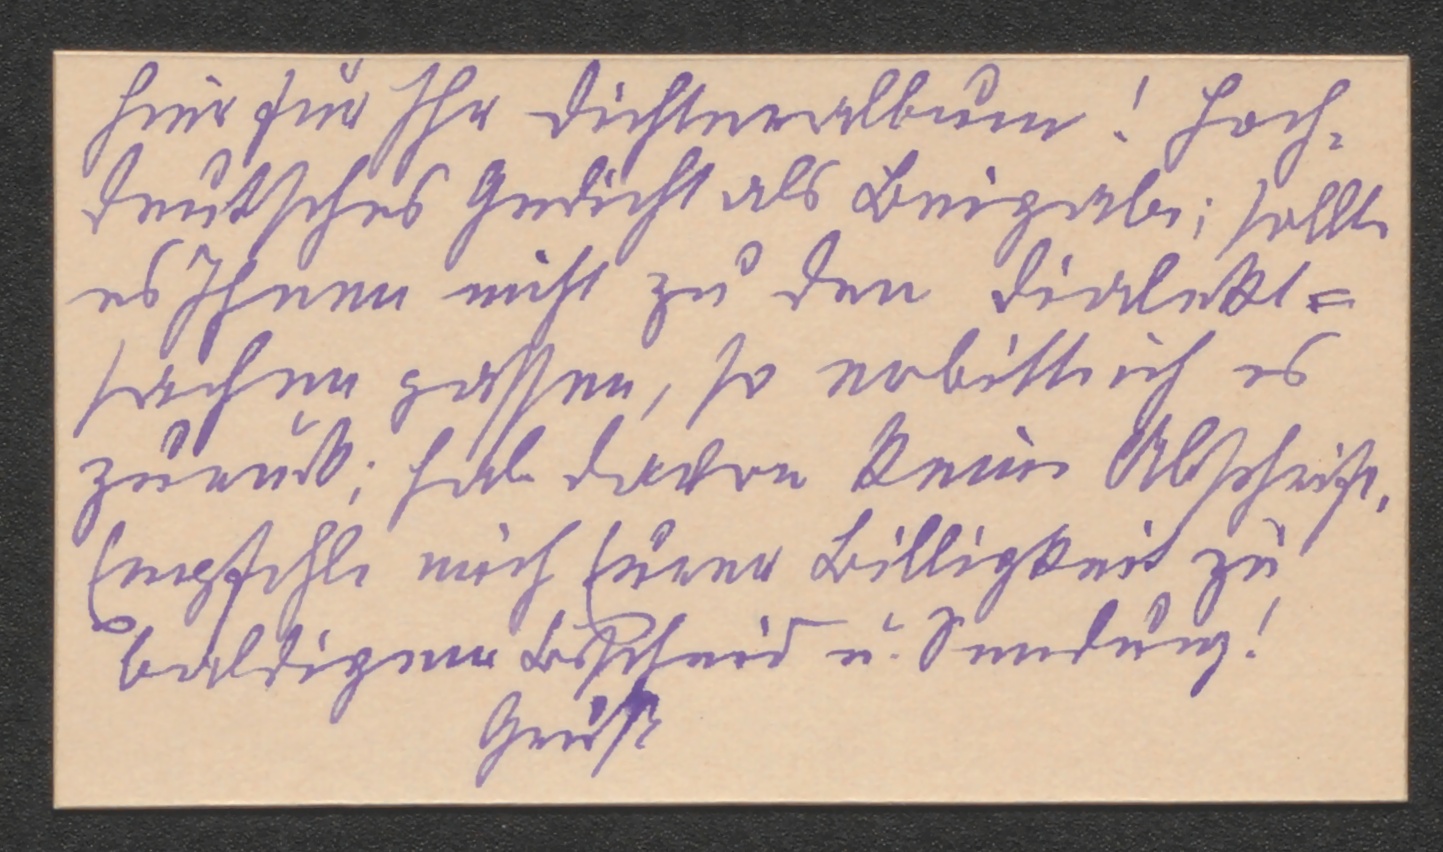 Hier für Ihr Dichteralbum! Hoch-
deutsches Gedicht als Beigabe; sollte
es Ihnen nicht zu den Dialekt=
sachen passen, so erbitte ich es
zurück; hab davon keine Abschrift.
Empfehle mich Eurer Billigkeit zu
baldigem Bescheid u. Sendung!
Gruß